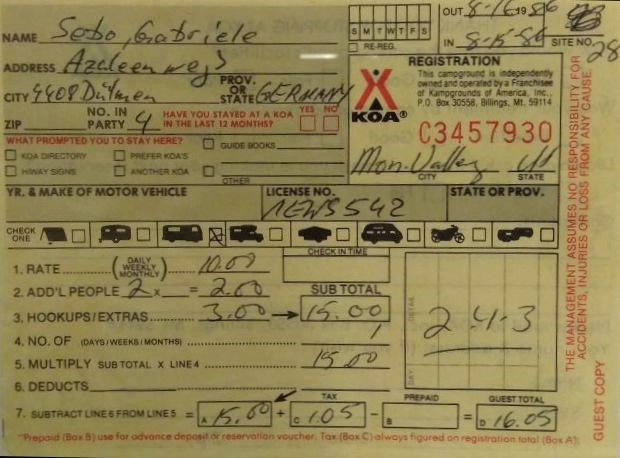 OUT 8-16 1986
NAME Sebo, Gabriele
S M T W T F S
IN 8-15-86
SITE NO. 28
RE-REG.
ADDRESS Azaleenweg 5
PROV. OR STATE GERMANY
CITY 4408 Dülmen
ZIP
NO. IN PARTY 4
HAVE YOU STAYED AT A KOA IN THE LAST 12 MONTHS?
YES NO
REGISTRATION
This campground is independently
owned and operated by a Franchisee
of Kampgrounds of America, Inc.
P.O. Box 30558, Billings, Mt. 59114
KOA®
C3457930
Mon. Valley Ut
CITY STATE
WHAT PROMPTED YOU TO STAY HERE?
GUIDE BOOKS
KOA DIRECTORY
PREFER KOA'S
HIWAY SIGNS
ANOTHER KOA
OTHER
YR. & MAKE OF MOTOR VEHICLE
LICENSE NO.
1EWS542
STATE OR PROV.
CHECK ONE
CHECK IN TIME
1. RATE (DAILY WEEKLY MONTHLY) 10.00
2. ADD'L PEOPLE 2 x = 2.00
SUB TOTAL
3. HOOKUPS/EXTRAS 3.00 15.00
4. NO. OF (DAYS/WEEKS/MONTHS) 1
5. MULTIPLY SUB TOTAL X LINE 4 15.00
6. DEDUCTS
7. SUBTRACT LINE 6 FROM LINE 5 = A 15.00 + TAX C 1.05 - PREPAID B = GUEST TOTAL D 16.05
DETAIL
DAY
2-4-3
*Prepaid (Box B) use for advance deposit or reservation voucher. Tax (Box C) always figured on registration total (Box A).
THE MANAGEMENT ASSUMES NO RESPONSIBILITY FOR
ACCIDENTS, INJURIES OR LOSS FROM ANY CAUSE.
GUEST COPY